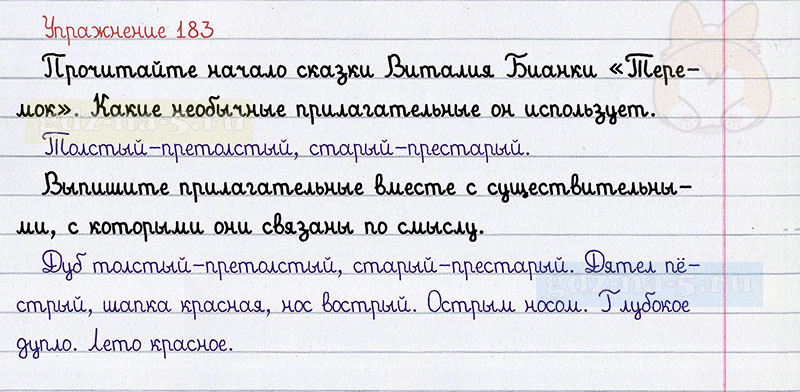 Упражнение 183
Прочитайте начало сказки Виталия Бианки «Тере-
мок». Какие необычные прилагательные он использует.
Толстый-претолстый, старый-престарый.
Выпишите прилагательные вместе с существительны-
ми, с которыми они связаны по смыслу.
Дуб толстый-претолстый, старый-престарый. Дятел пё-
стрый, шапка красная, нос вострый. Острым носом. Глубокое
дупло. Лето красное.